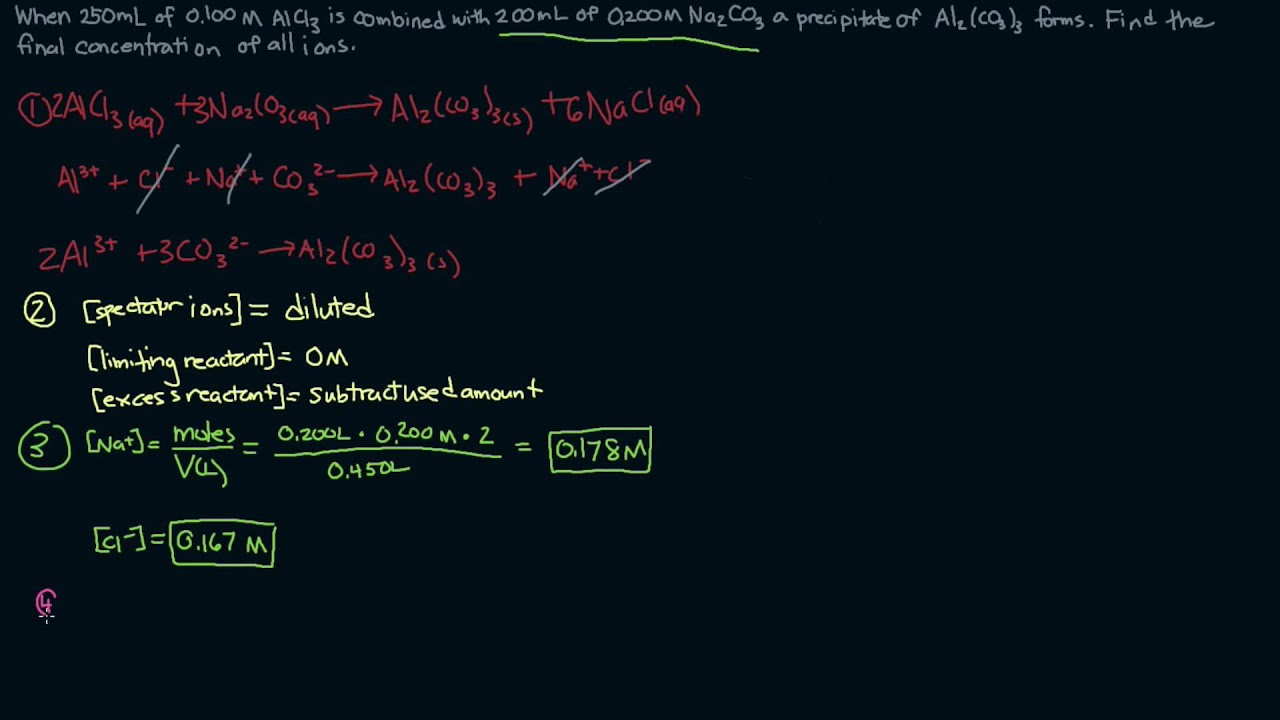 When 250mL of 0.100 M AlCl₃ is combined with 200mL of 0.200M Na₂CO₃ a precipitate of Al₂(CO₃)₃ forms. Find the
final concentration of all ions.
① 2AlCl₃(aq) + 3Na₂CO₃(aq) → Al₂(CO₃)₃(s) + 6NaCl(aq)
Al³⁺ + Cl⁻ + Na⁺ + CO₃²⁻ → Al₂(CO₃)₃ + Na⁺ + Cl⁻
2Al³⁺ + 3CO₃²⁻ → Al₂(CO₃)₃(s)
② [spectator ions] = diluted
[limiting reactant] = 0M
[excess reactant] = subtract used amount
③ [Na⁺] = moles / V(L) = 0.200L · 0.200M · 2 / 0.450L = 0.178M
[Cl⁻] = 0.167 M
④